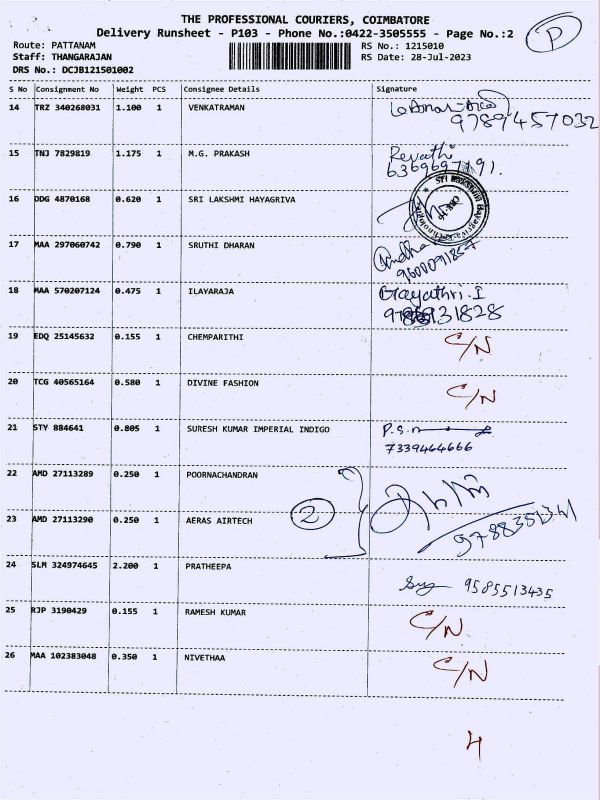 THE PROFESSIONAL COURIERS, COIMBATORE
Delivery Runsheet - P103 - Phone No.:0422-3505555 - Page No.:2
P
Route: PATTANAM RS No.: 1215010
Staff: THANGARAJAN RS Date: 28-Jul-2023
DRS No.: DCJB121501002
S No Consignment No Weight PCS Consignee Details Signature
14 TRZ 340268031 1.100 1 VENKATRAMAN
9789457032
15 TNJ 7829819 1.175 1 M.G. PRAKASH Revathi
6369697191.
16 DDG 4870168 0.620 1 SRI LAKSHMI HAYAGRIVA
17 MAA 297060742 0.790 1 SRUTHI DHARAN
18 MAA 570207124 0.475 1 ILAYARAJA Gayathri. I
19 EDQ 25145632 0.155 1 CHEMPARITHI C/N
20 TCG 40565164 0.580 1 DIVINE FASHION C/N
21 STY 884641 0.805 1 SURESH KUMAR IMPERIAL INDIGO P.S.n
7339464666
22 AMD 27113289 0.250 1 POORNACHANDRAN
2
23 AMD 27113290 0.250 1 AERAS AIRTECH
24 SLM 324974645 2.200 1 PRATHEEPA 9585513435
25 RJP 3190429 0.155 1 RAMESH KUMAR C/N
26 MAA 102383048 0.350 1 NIVETHAA C/N
4